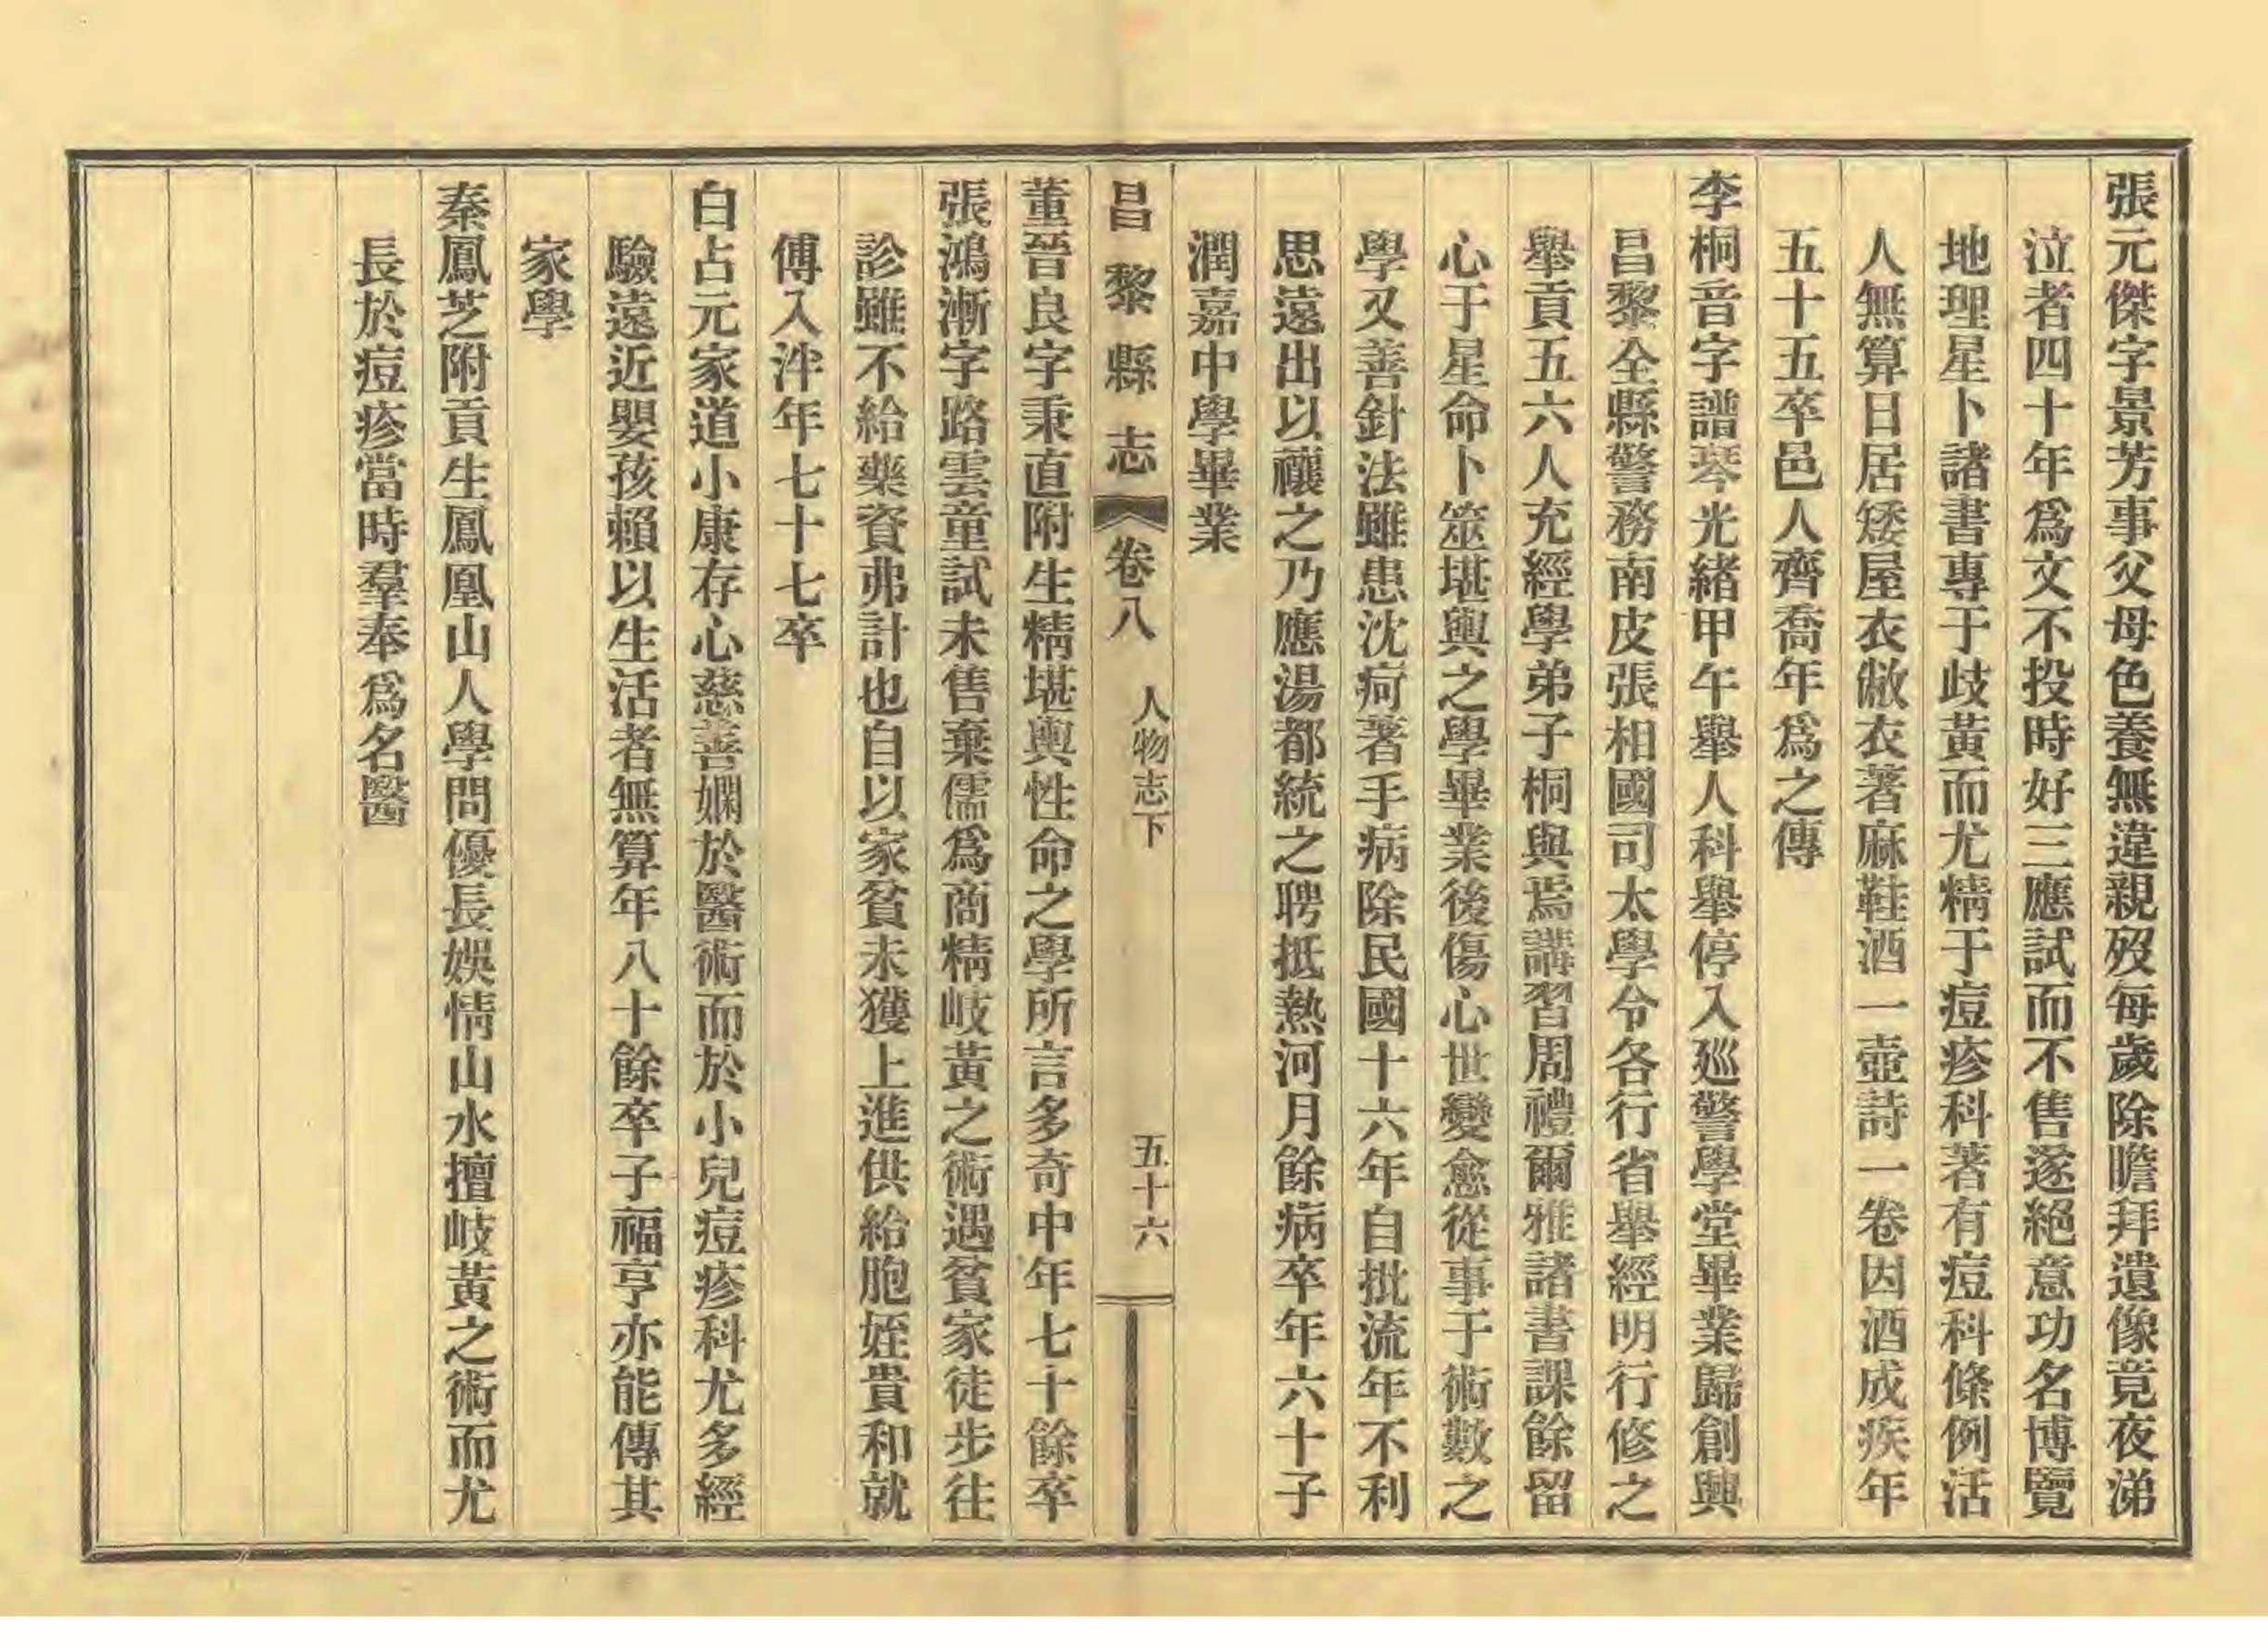 張元傑字景芳事父母色養無違親歿每歲除瞻拜遺像竟夜涕
泣者四十年爲文不投時好三應試而不售遂絕意功名博覽
地理星卜諸書專于歧黃而尤精于痘疹科著有痘科條例活
人無算日居矮屋衣敝衣著麻鞋酒一壺詩一卷因酒成疾年
五十五卒邑人齊喬年爲之傳
李桐音字譜琴光緒甲午舉人科舉停入廵警學堂畢業歸創興
昌黎全縣警務南皮張相國司太學令各行省舉經明行修之
舉貢五六人充經學弟子桐與焉講習周禮爾雅諸書課餘留
心于星命卜筮堪輿之學畢業後傷心世變愈從事于術數之
學又善針法雖患沈疴著手病除民國十六年自批流年不利
思遠出以禳之乃應湯都統之聘抵熱河月餘病卒年六十子
潤嘉中學畢業
昌黎縣志 卷八 人物志下 五十六
董晉良字秉直附生精堪輿性命之學所言多奇中年七十餘卒
張鴻漸字路雲童試未售棄儒爲商精岐黃之術遇貧家徒步往
診雖不給藥資弗計也自以家貧未獲上進供給胞姪貴和就
傅入泮年七十七卒
白占元家道小康存心慈善嫻於醫術而於小兒痘疹科尤多經
驗遠近嬰孩賴以生活者無算年八十餘卒子福亨亦能傳其
家學
秦鳳芝附貢生鳳凰山人學問優長娛情山水擅岐黃之術而尤
長於痘疹當時羣奉爲名醫